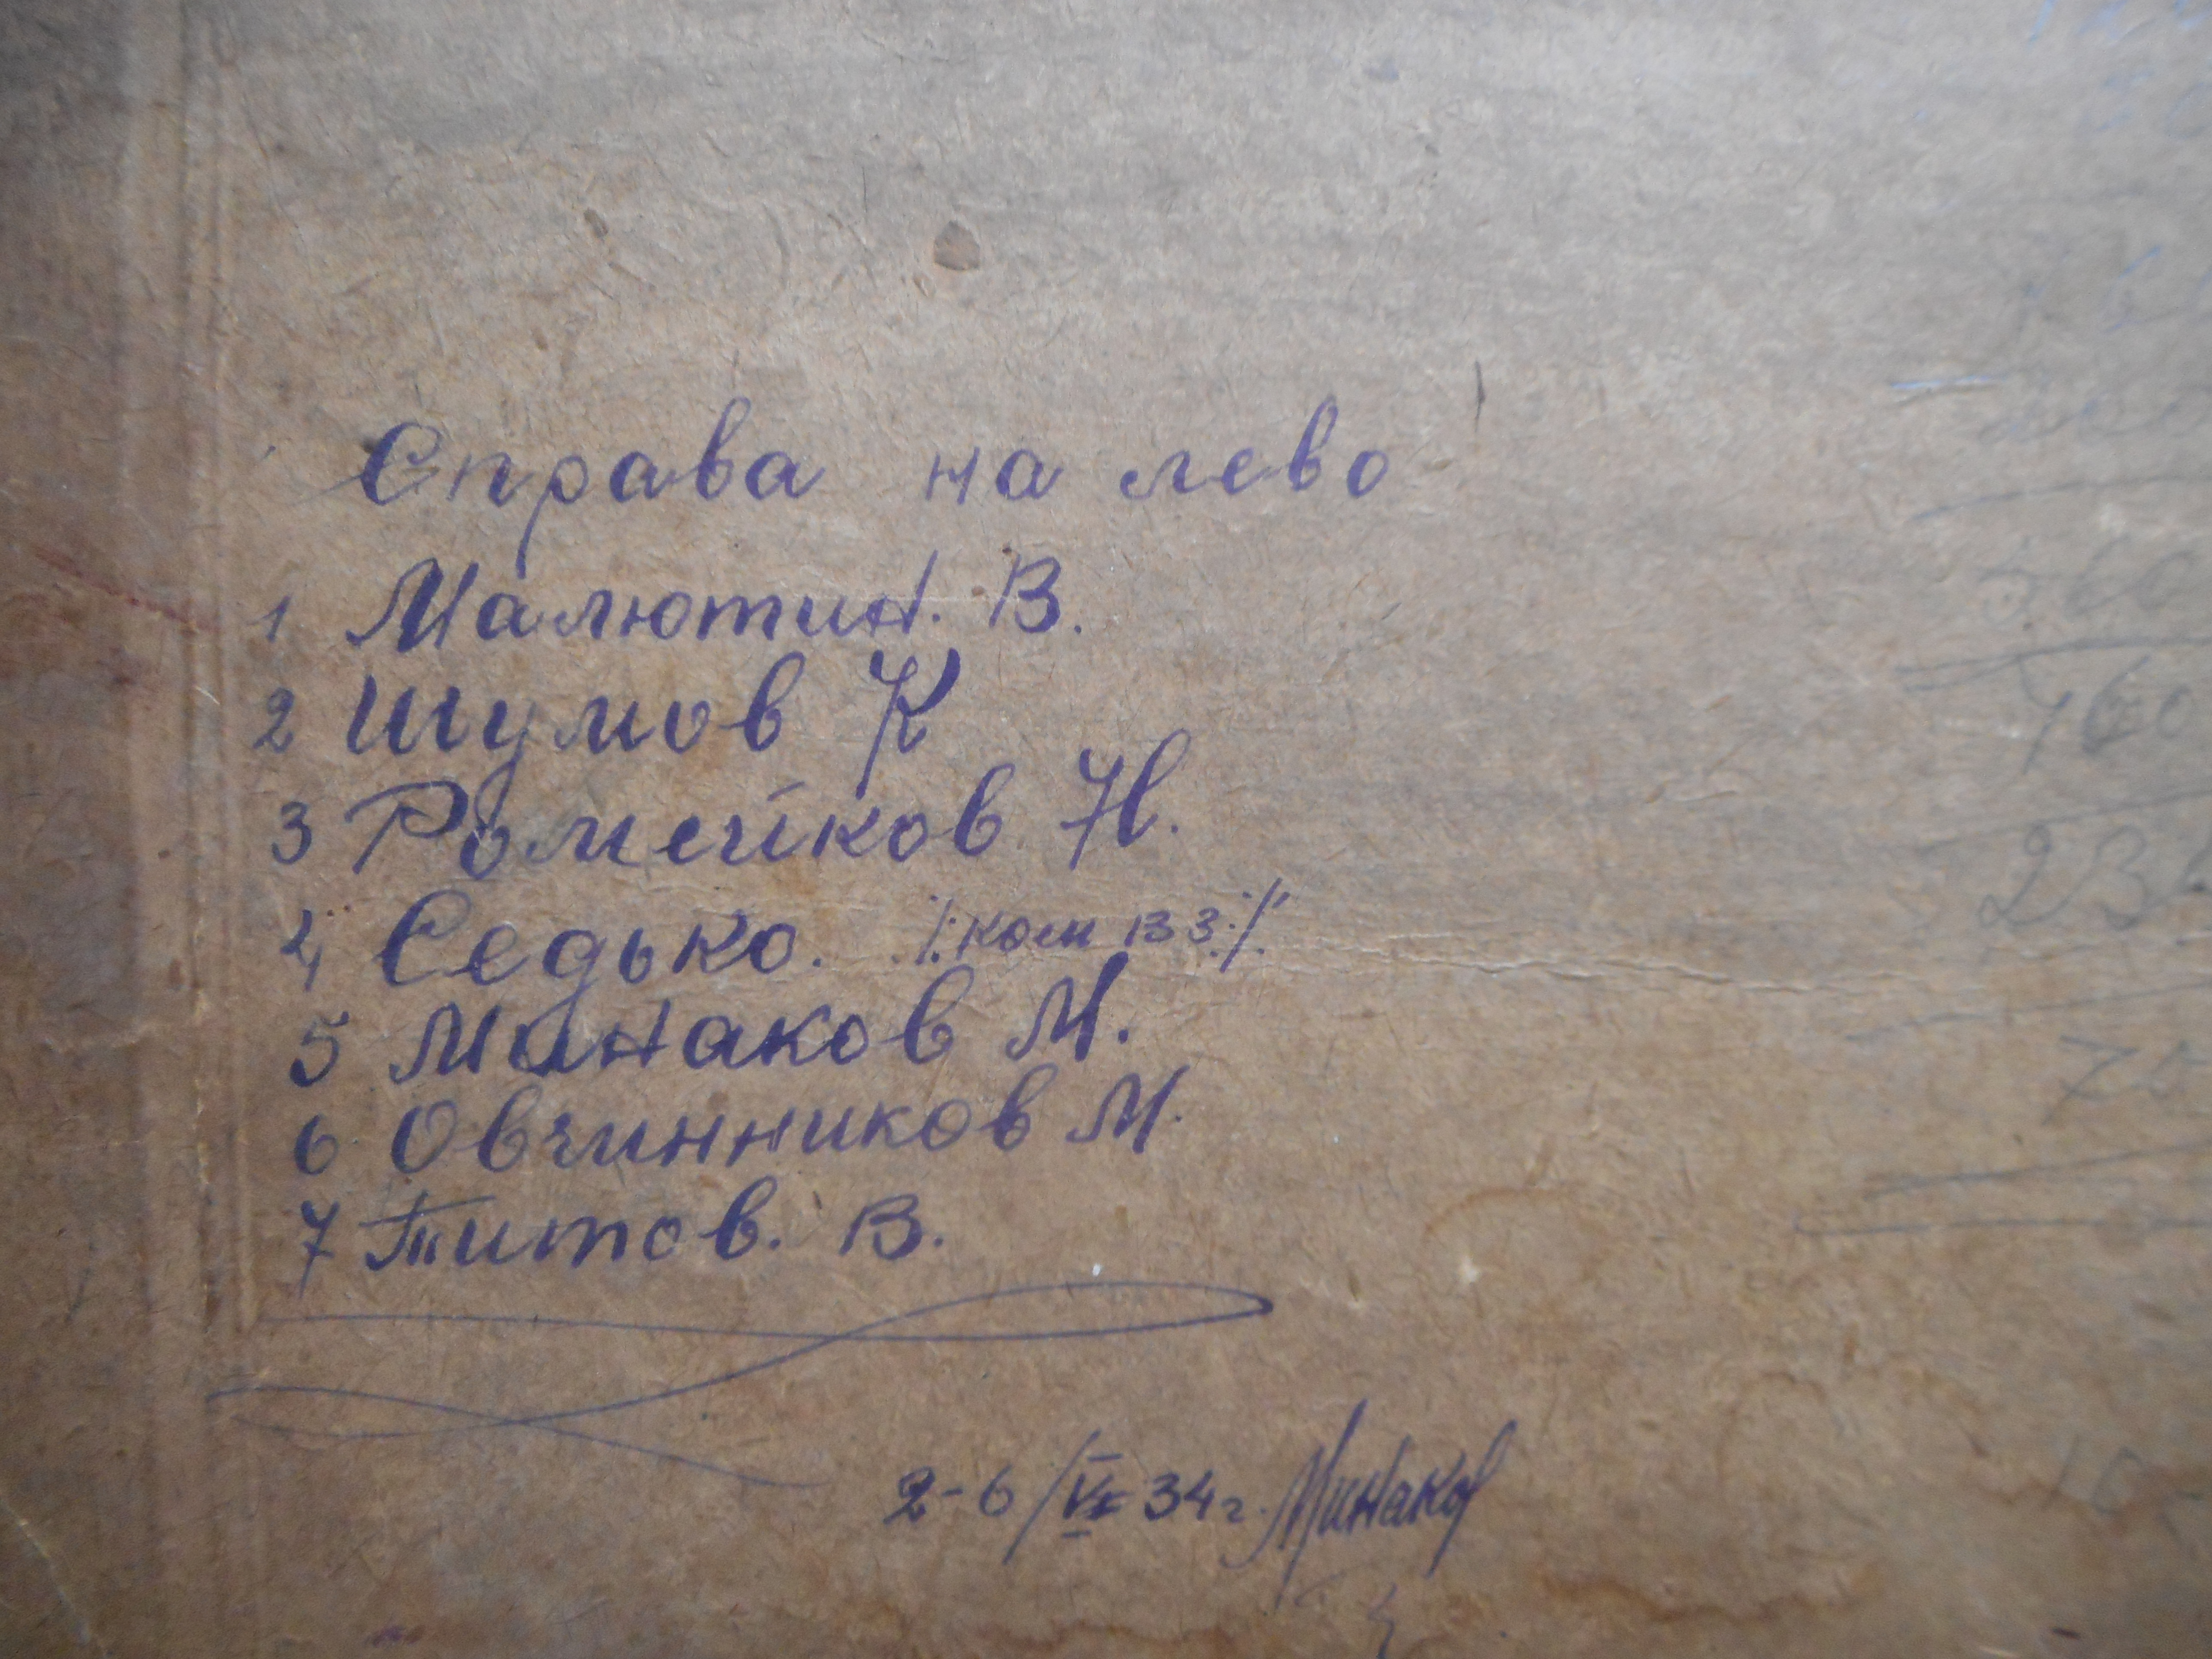 Справа на лево
1 Малютин. В.
2 Шумов К
3 Ромейков Н.
4 Седько. /:ком вз:/
5 Минаков М.
6 Овчинников М.
7 Титов. В.
2-6/VI 34 г. Минаков